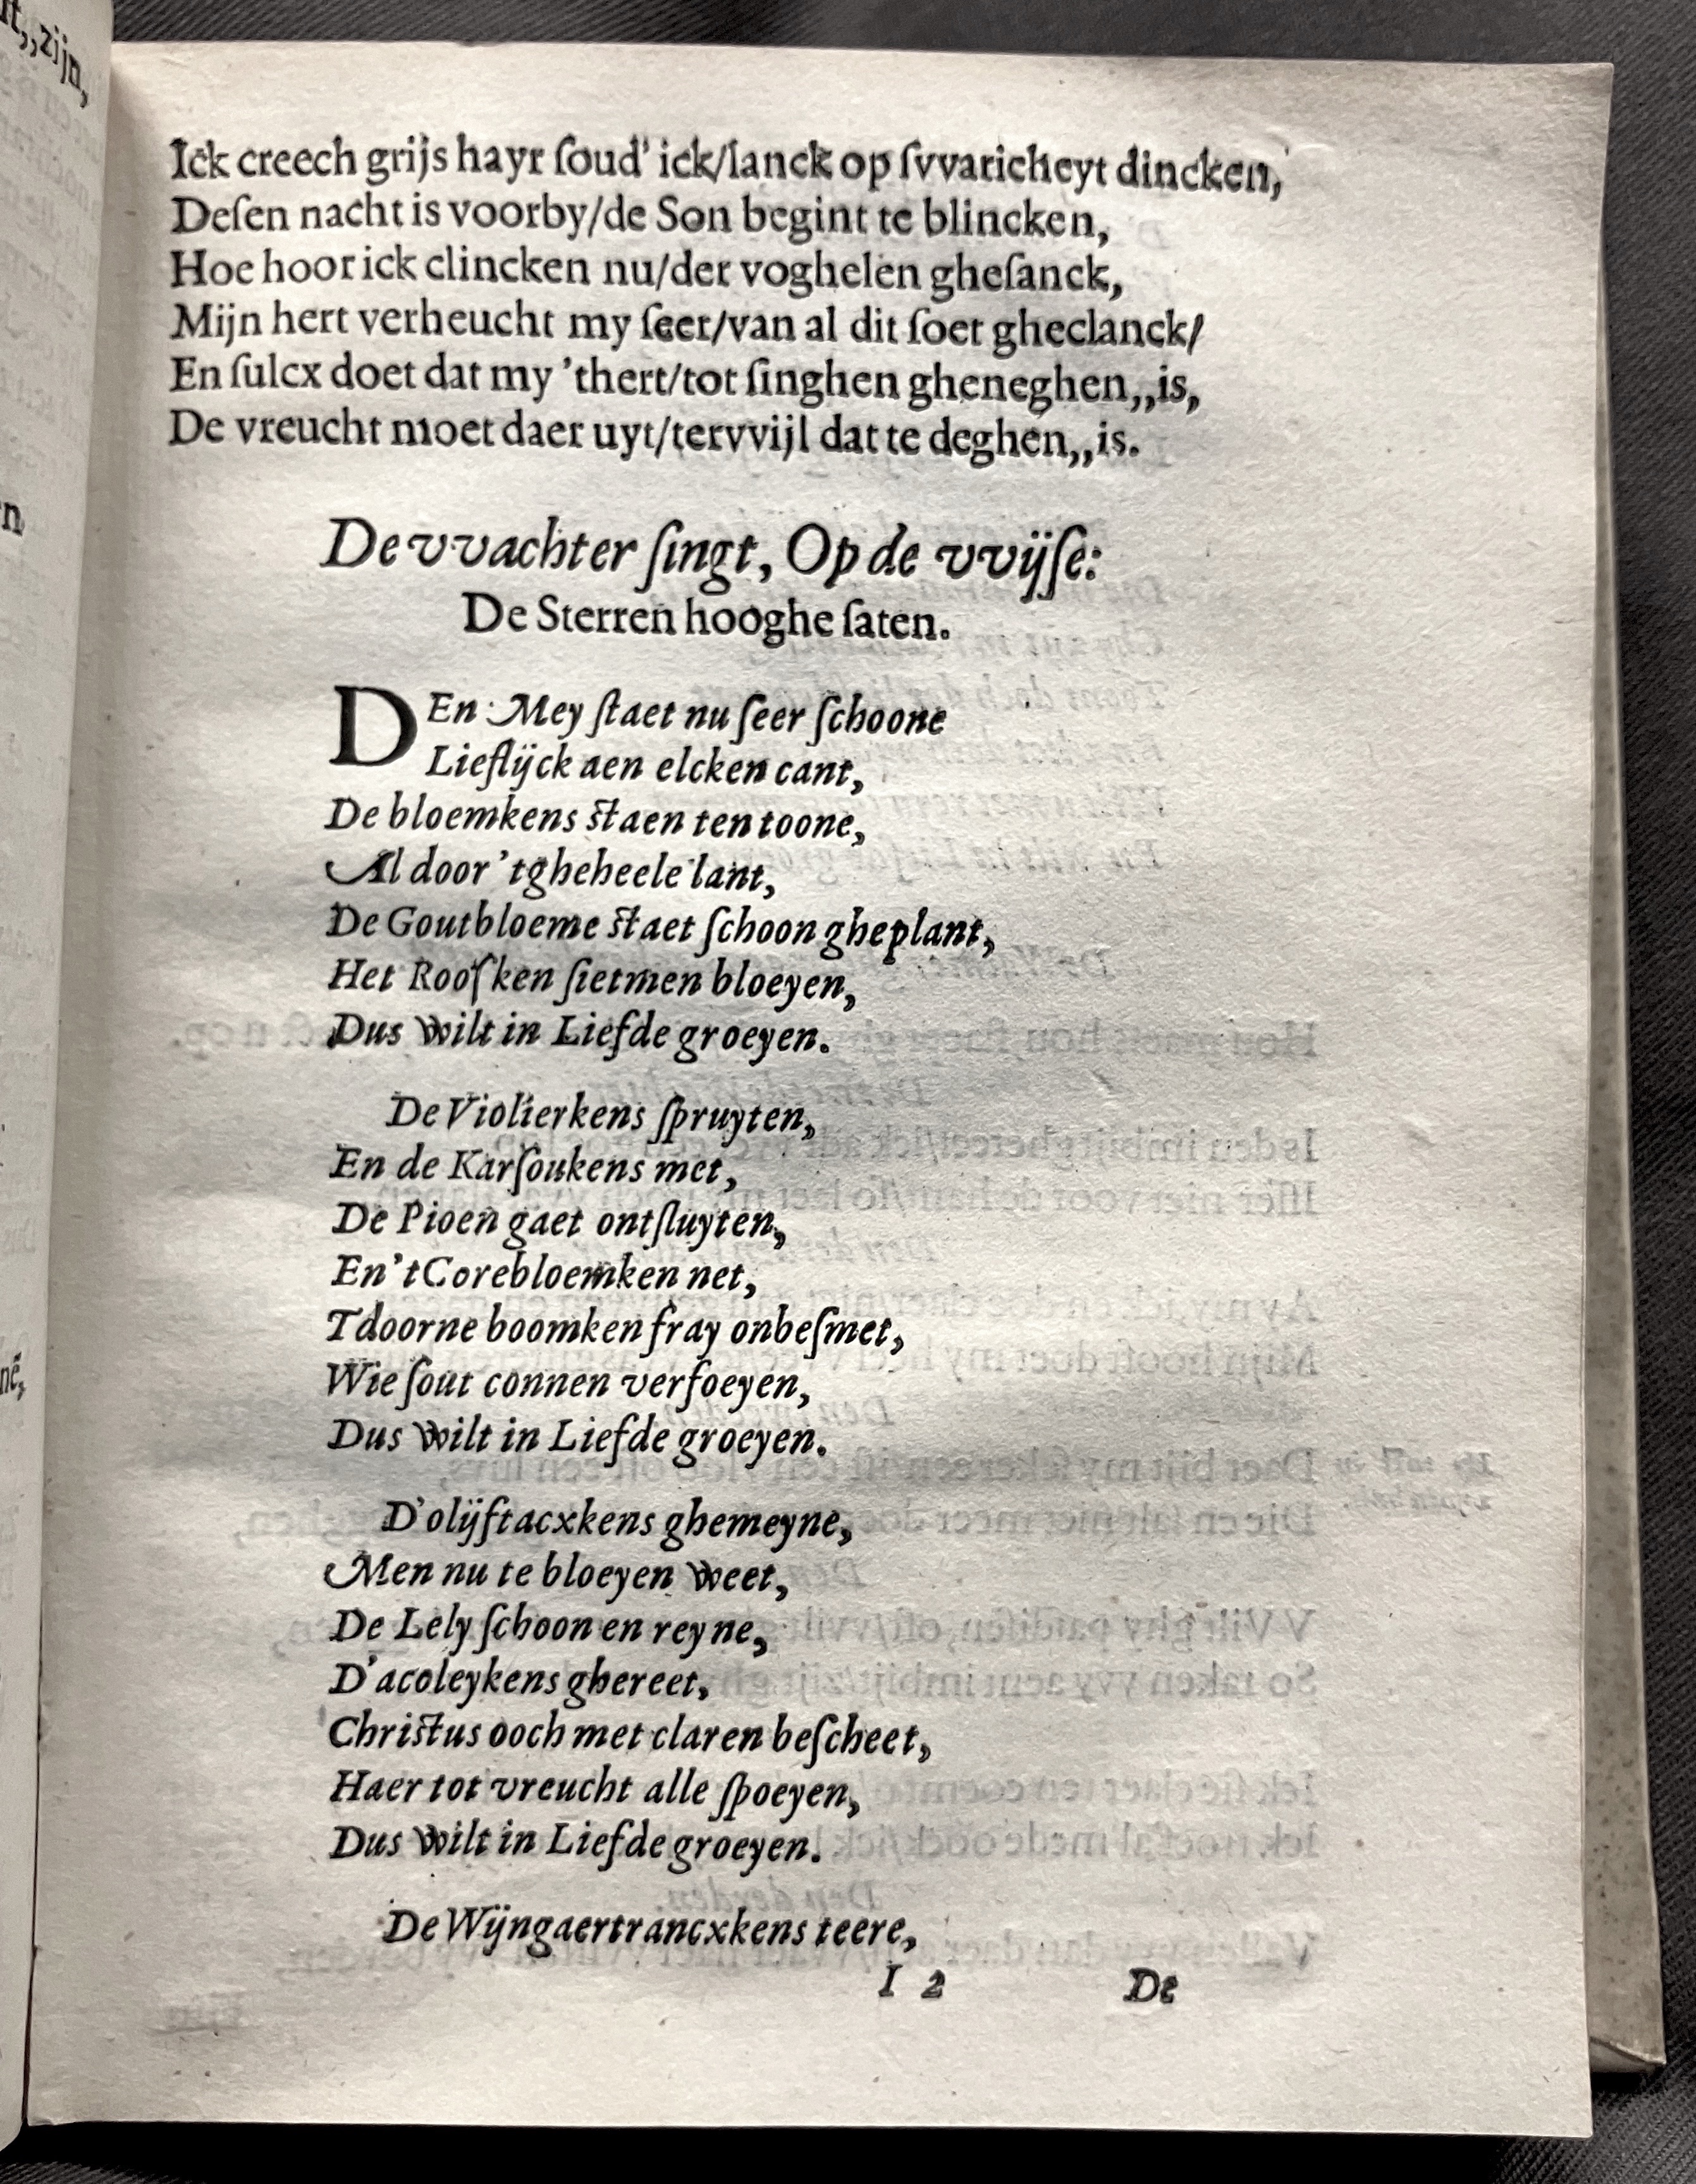 Ick creech grijs hayr ſoud' ick/lanck op ſvvaricheyt dincken,
Deſen nacht is voorby/de Son begint te blincken,
Hoe hoor ick clincken nu/der voghelen gheſanck,
Mijn hert verheucht my ſeer/van al dit ſoet gheclanck/
En ſulcx doet dat my 'thert/tot ſinghen gheneghen,,is,
De vreucht moet daer uyt/tervvijl dat te deghen,,is.
De vvachter ſingt, Op de vvijſe:
De Sterren hooghe ſaten.
DEn Mey ſtaet nu ſeer ſchoone
Lieflijck aen elcken cant,
De bloemkens ſtaen ten toone,
Al door 'tgheheele lant,
De Goutbloeme ſtaet ſchoon gheplant,
Het Rooſken ſietmen bloeyen,
Dus wilt in Liefde groeyen.
De Violierkens ſpruyten,
En de Karſoukens met,
De Pioen gaet ontſluyten,
En 't Corebloemken net,
Tdoorne boomken fray onbeſmet,
Wie ſout connen verfoeyen,
Dus wilt in Liefde groeyen.
D'olijftacxkens ghemeyne,
Men nu te bloeyen weet,
De Lely ſchoon en reyne,
D'acoleykens ghereet,
Chriſtus ooch met claren beſcheet,
Haer tot vreucht alle ſpoeyen,
Dus wilt in Liefde groeyen.
De Wijngaertrancxkens teere,
I 2 De